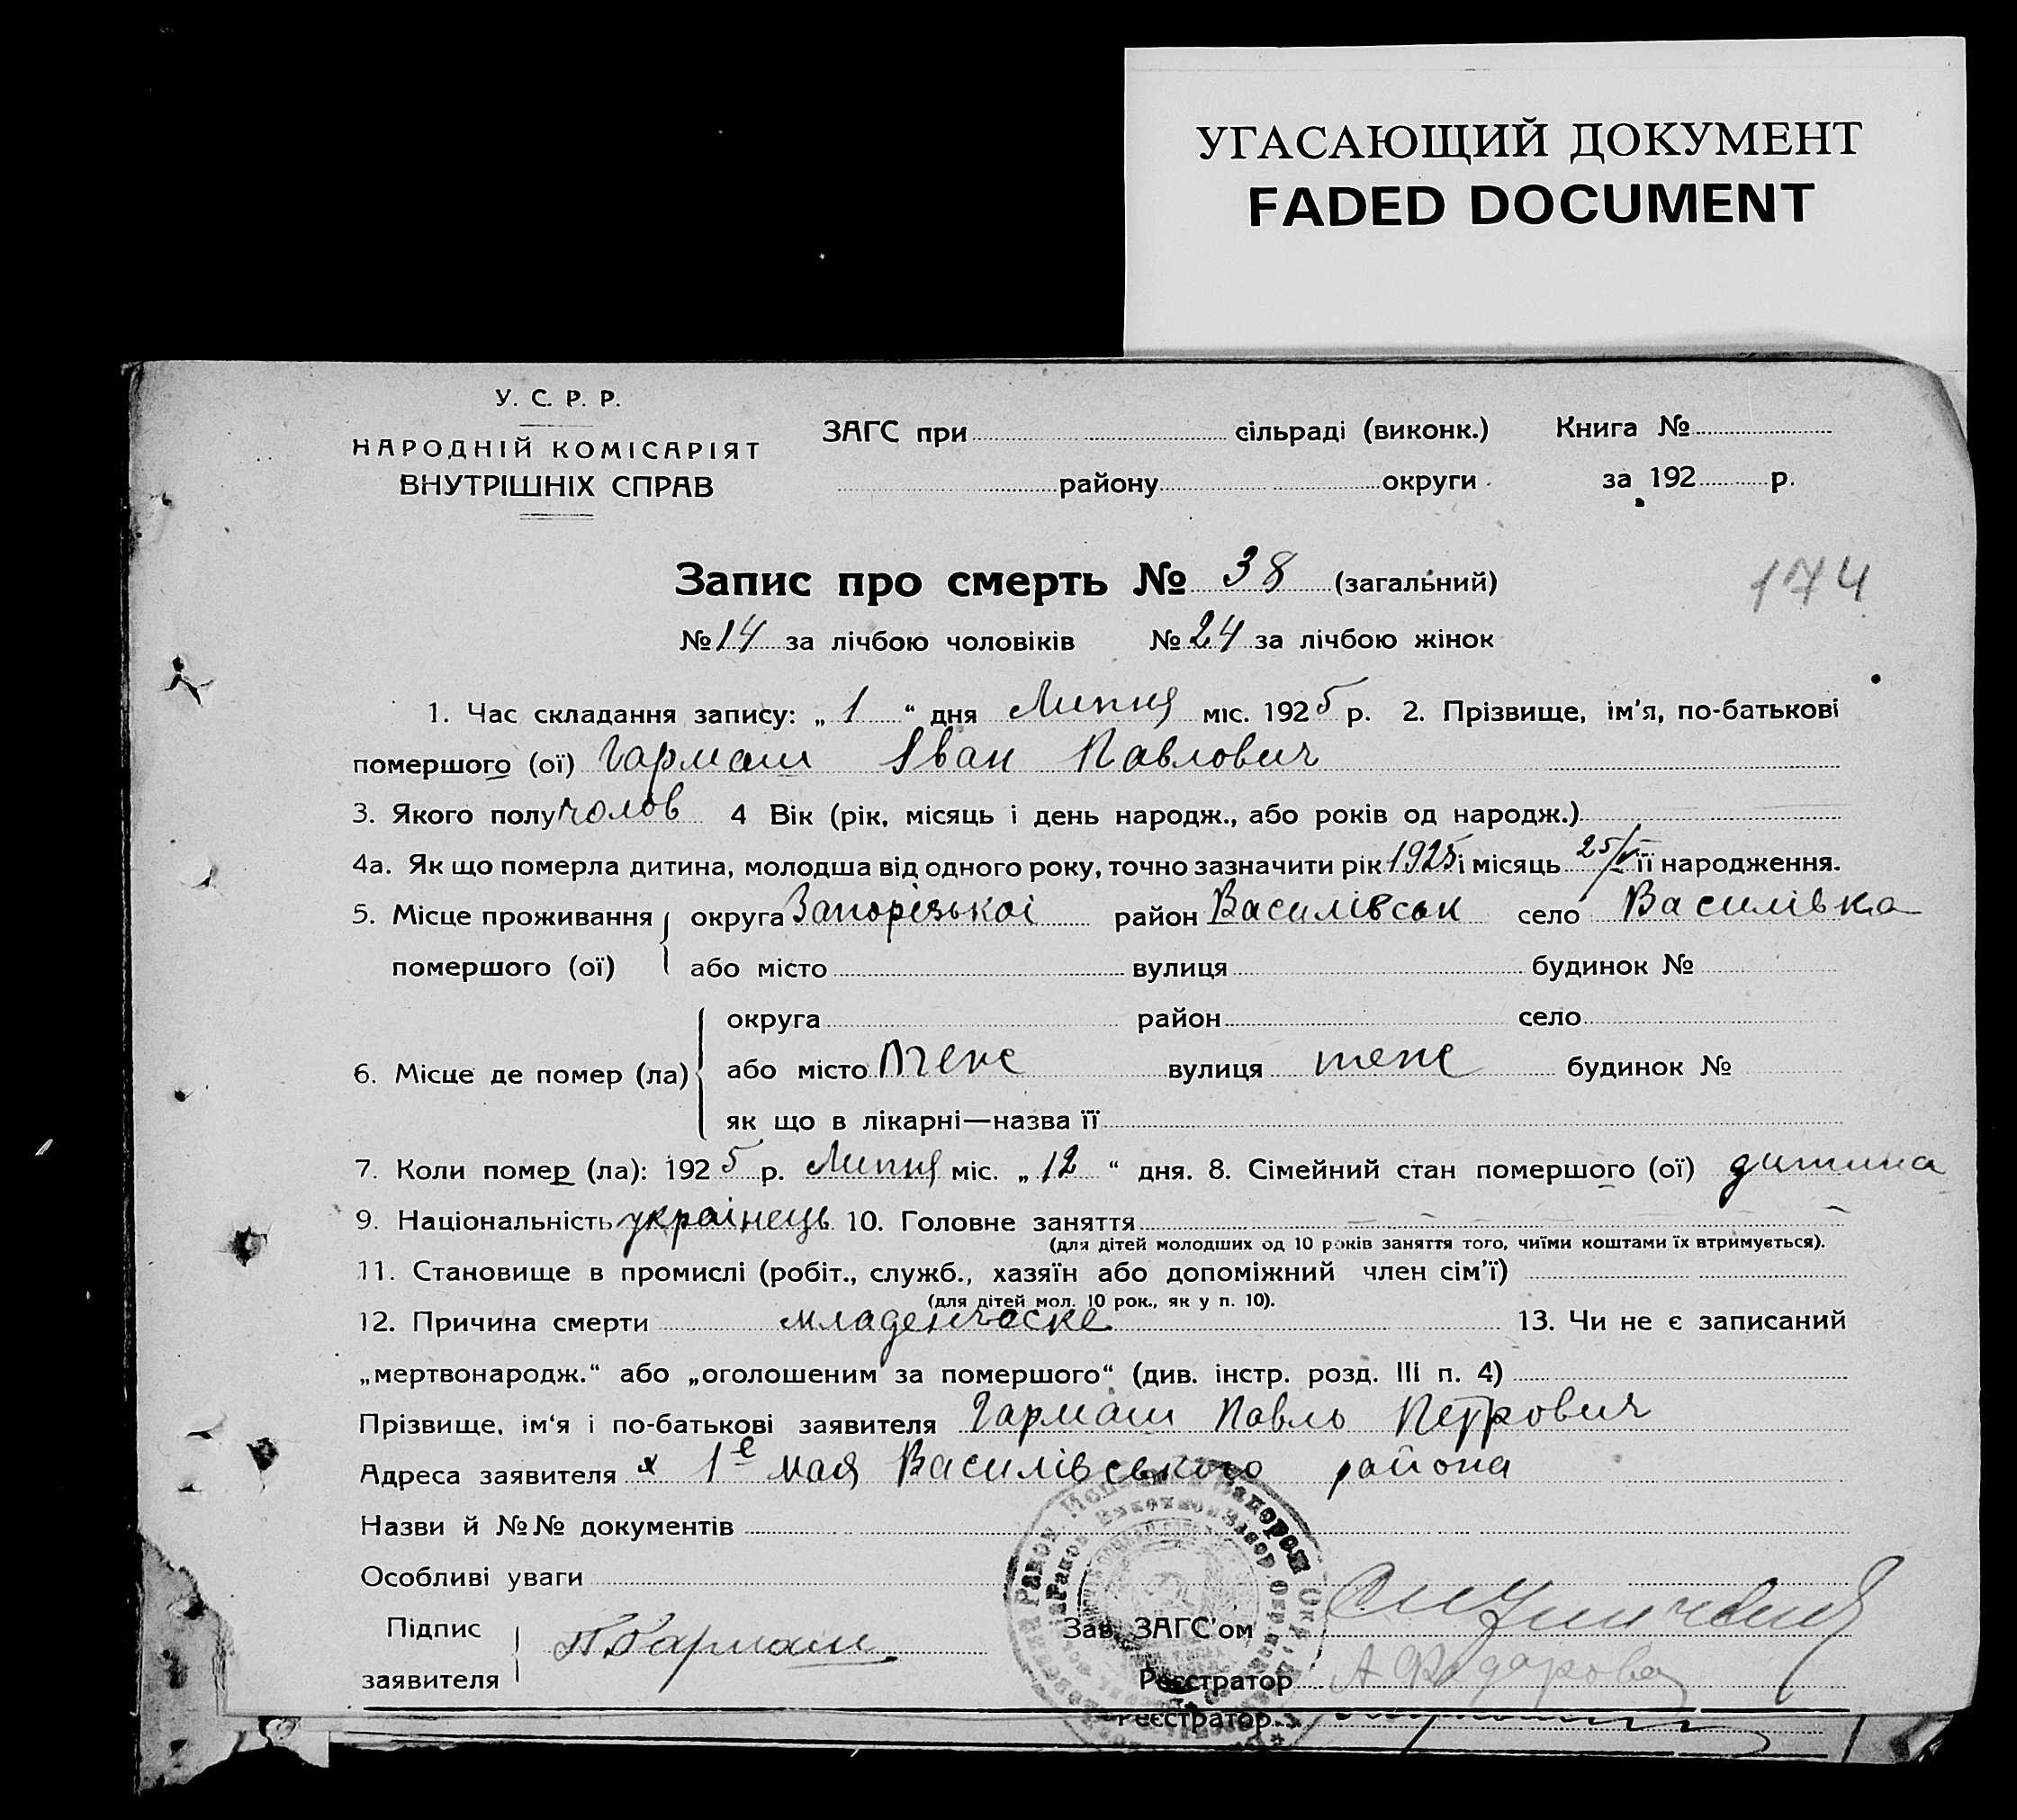 УГАСАЮЩИЙ ДОКУМЕНТ
FADED DOCUMENT
У. С. Р. Р.
НАРОДНІЙ КОМІСАРІЯТ
ВНУТРІШНІХ СПРАВ
ЗАГС при сільраді (виконк.) Книга №
району округи за 192 р.
Запис про смерть № 38 (загальний)
174
№ 14 за лічбою чоловіків № 24 за лічбою жінок
1. Час складання запису: „ 1 “ дня Липня міс. 1925 р. 2. Прізвище, ім'я, по-батькові
помершого (ої) Гармаш Іван Павлович
3. Якого полу чолов 4 Вік (рік, місяць і день народж., або років од народж.)
4а. Як що померла дитина, молодша від одного року, точно зазначити рік 1925 і місяць 25/V її народження.
5. Місце проживання округа Запорізькоі район Василівськ село Василівка
помершого (ої) або місто вулиця будинок №
округа район село
6. Місце де помер (ла) або місто теж вулиця теж будинок №
як що в лікарні—назва її
7. Коли помер (ла): 1925 р. Липня міс. „ 12 “ дня. 8. Сімейний стан помершого (ої) дитина
9. Національність украінець 10. Головне заняття
(для дітей молодших од 10 років заняття того, чиїми коштами їх втримується).
11. Становище в промислі (робіт., служб., хазяїн або допоміжний член сім'ї)
(для дітей мол. 10 рок., як у п. 10).
12. Причина смерти младенческе 13. Чи не є записаний
„мертвонародж.“ або „оголошеним за помершого“ (див. інстр. розд. III п. 4)
Прізвище, ім'я і по-батькові заявителя Гармаш Павло Петрович
Адреса заявителя х 1е мая Василівського района
Назви й №№ документів
Особливі уваги
Підпис
заявителя П Гармаш
Зав. ЗАГС'ом
Реєстратор А Федорова
Реєстратор